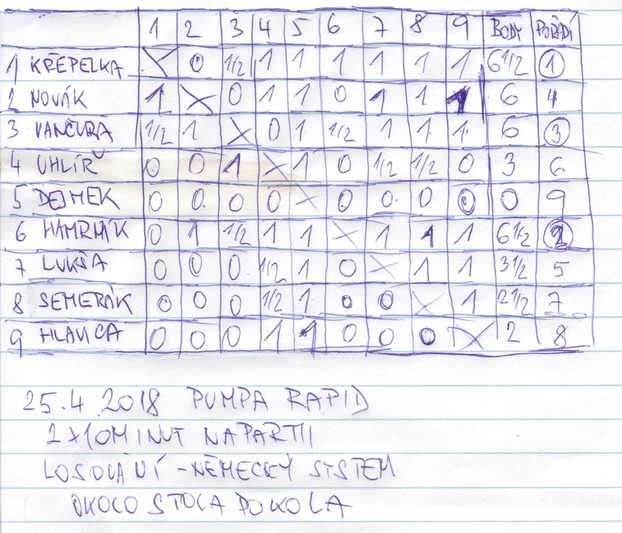 1 2 3 4 5 6 7 8 9 BODY POŘADÍ
1 KŘEPELKA X 0 1/2 1 1 1 1 1 1 6 1/2 1
2 NOVÁK 1 X 0 1 1 0 1 1 1 6 4
3 VANČURA 1/2 1 X 0 1 1/2 1 1 1 6 3
4 UHLÍŘ 0 0 1 X 1 0 1/2 1/2 0 3 6
5 DEJMEK 0 0 0 0 X 0 0 0 0 0 9
6 HAMRNÍK 0 1 1/2 1 1 X 1 1 1 6 1/2 2
7 LUKŠA 0 0 0 1/2 1 0 X 1 1 3 1/2 5
8 SEMERÁK 0 0 0 1/2 1 0 0 X 1 2 1/2 7
9 HLAVICA 0 0 0 1 1 0 0 0 X 2 8
25.4 2018 PUMPA RAPID
2x10MINUT NA PARTII
LOSOVÁNÍ - NĚMECKÝ SYSTEM
OKOLO STOLA POKOLA